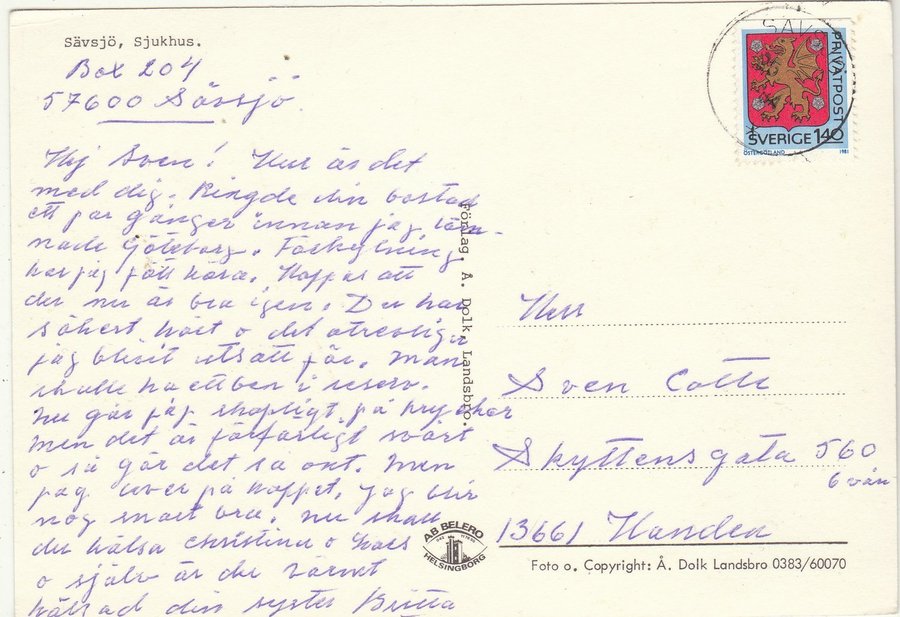 Sävsjö, Sjukhus.
Box 204
57600 Sävsjö
Hej Sven! Hur är det
med dig. Ringde din bostad
ett par gånger innan jag läm-
nade Göteborg. Förkylning
har jag fått höra. Hoppas att
du nu är bra igen. Du har
säkert hört o det otrevliga
jag blivit utsatt för. Man
skulle ha ett ben i reserv.
Nu går jag skapligt på kryckor
men det är förfärligt svårt
o så gör det så ont. Men
jag lever på hoppet, jag blir
nog snart bra. Nu skall
du hälsa Christina o
o själv är du varmt
hälsad din syster Britta
Förlag. Å. Dolk, Landsbro.
AB BELERO
HELSINGBORG
SÄVSJÖ
PRIVATPOST
SVERIGE 140
ÖSTERGÖTLAND 1981
Herr
Sven Cotte
Skyttensgata 560
6 vån
13661 Handen
Foto o. Copyright: Å. Dolk Landsbro 0383/60070